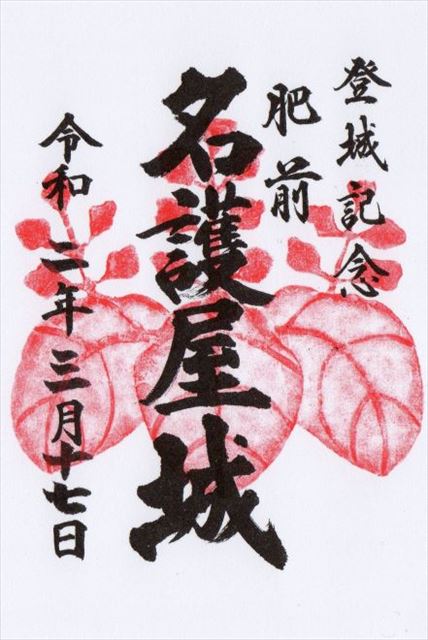 登城記念
肥前
名護屋城
令和二年三月十七日